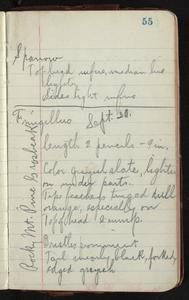 55
Sparrow
Top head rufous, median line
lighter
Sides light rufous
Fringillus Sept. 20.
Rocky Mt. Pine Grosbeak
Length 2 pencils - 9 in.
Color grayish slate, lighter
on under parts.
Tips feathers tinged dull
orange, especially on
top of head & rump.
Bristles prominent
Tail smoky black, forked,
edged grayish